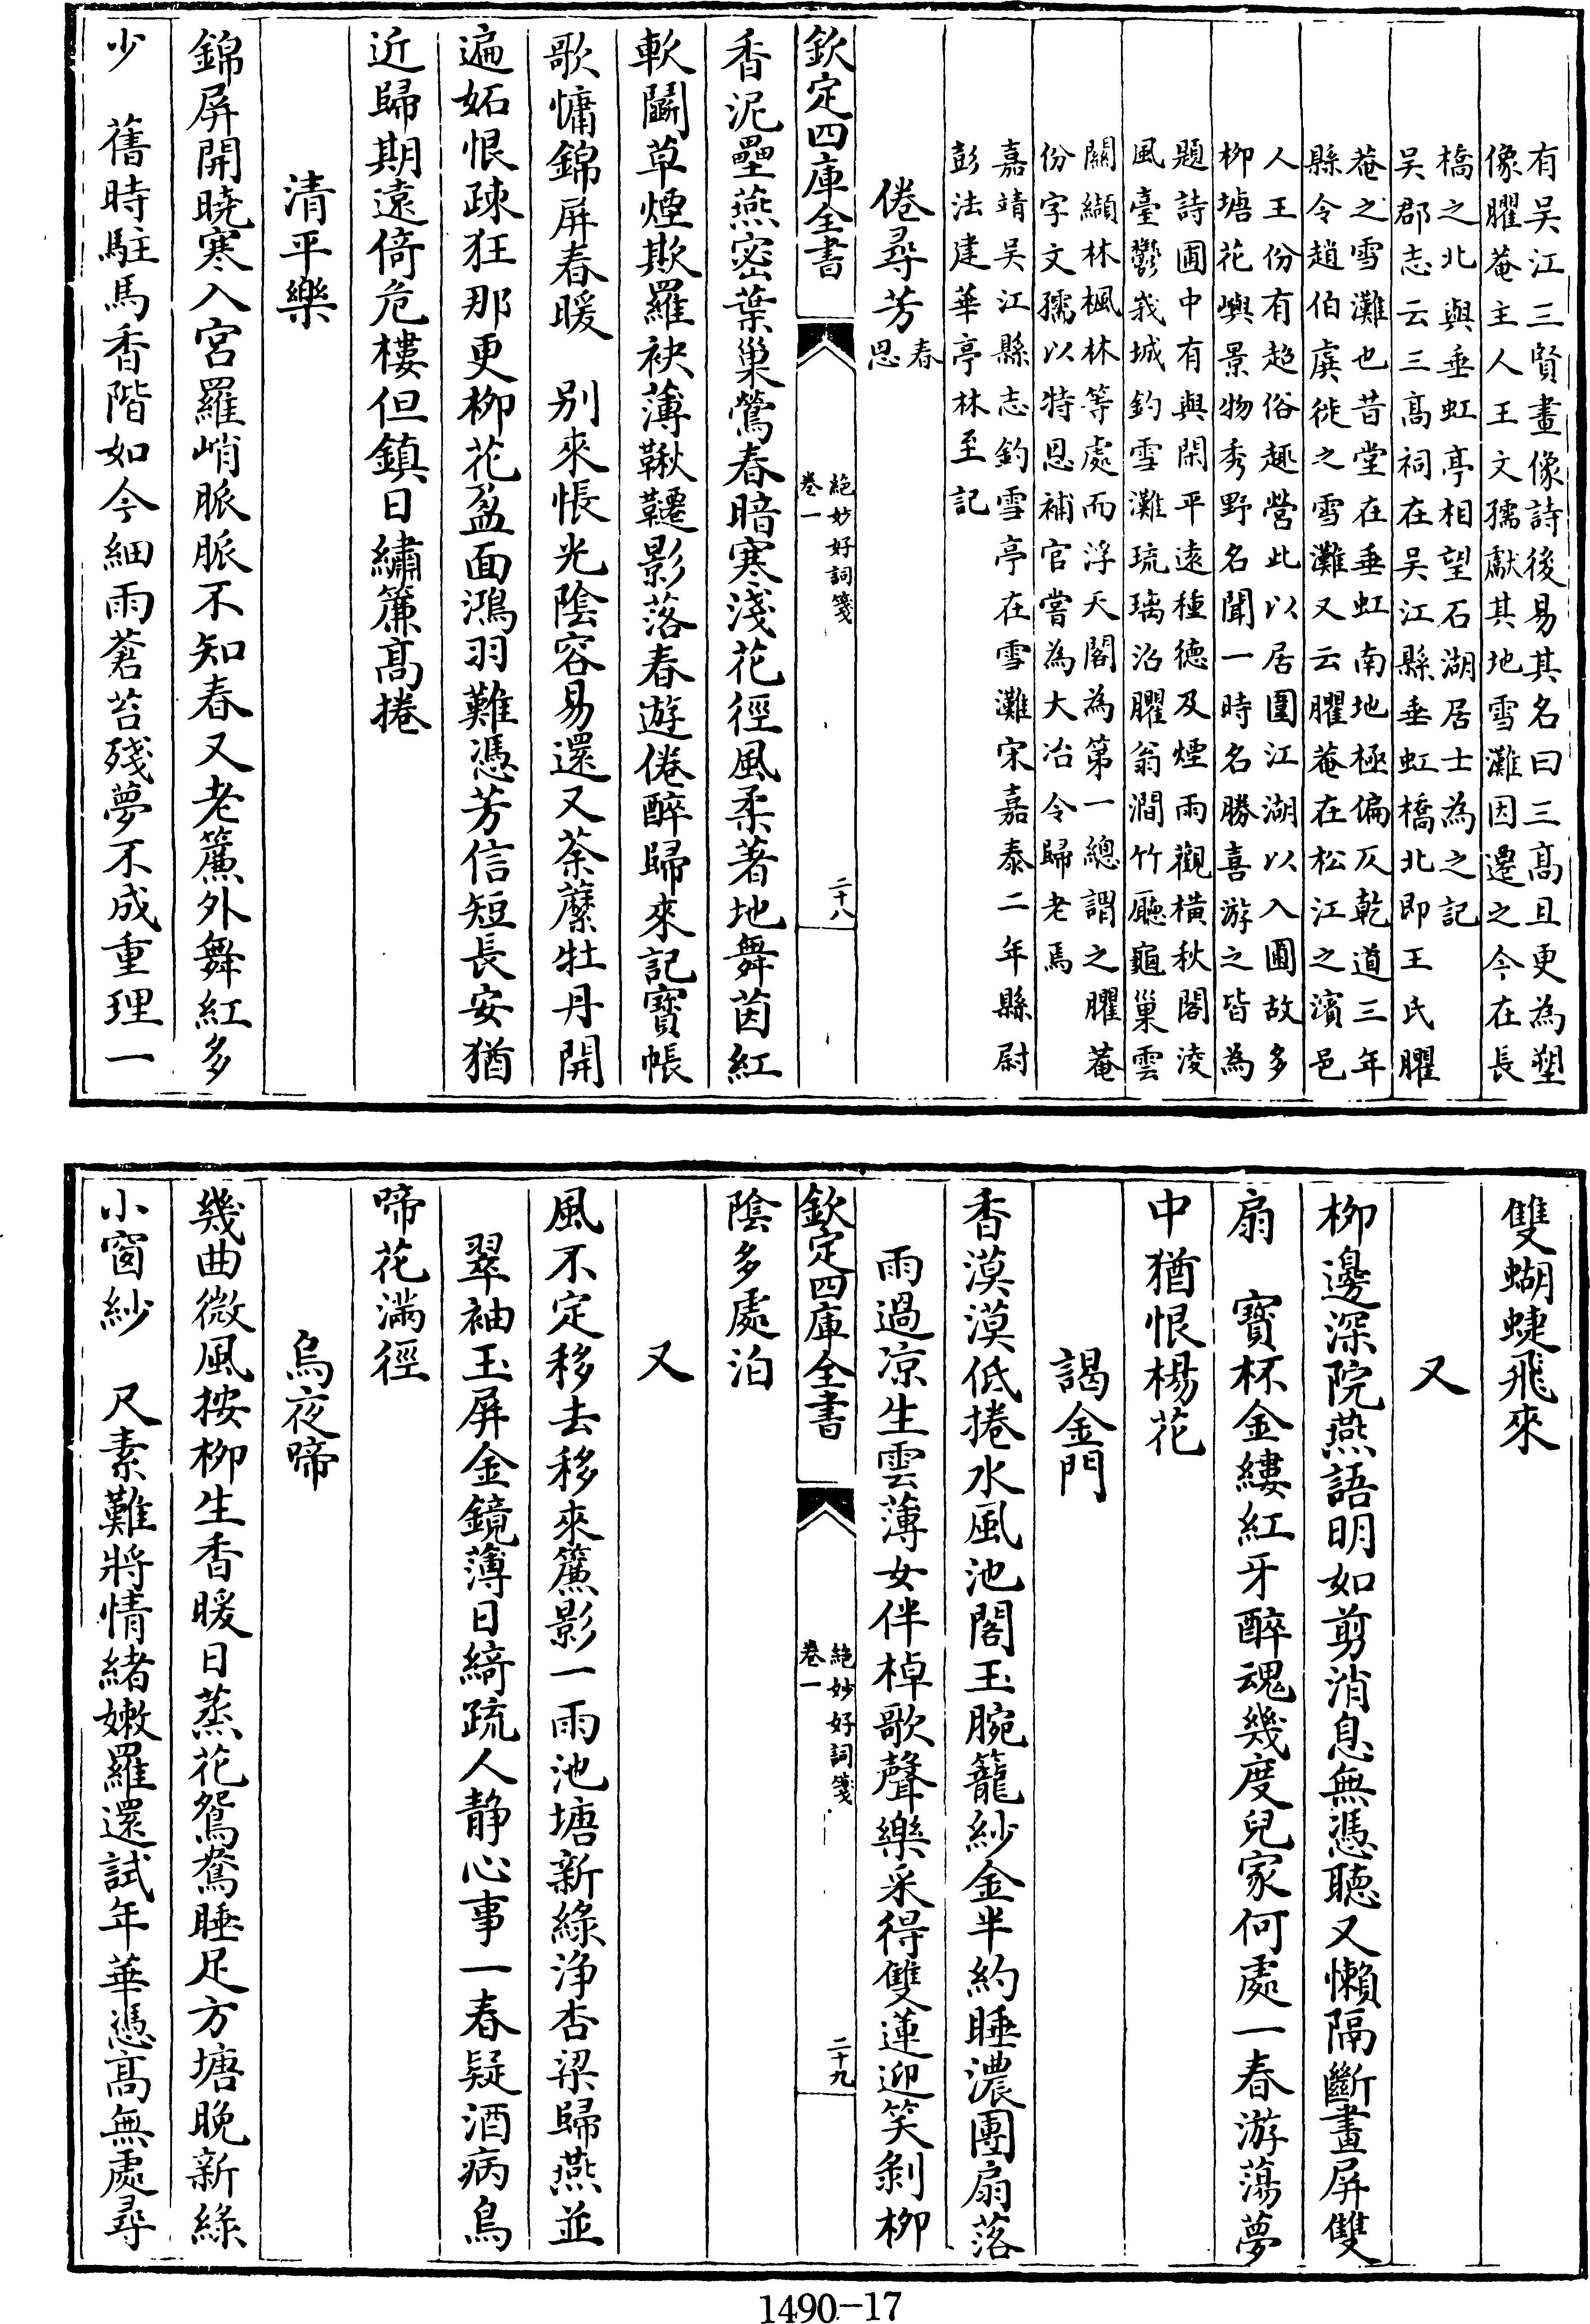 有吴江三賢畫像詩後易其名曰三髙且更為塑
像臞菴主人王文孺獻其地雪灘因遷之今在長
橋之北與垂虹亭相望石湖居士為之記
吴郡志云三髙祠在吴江縣垂虹橋北即王氏臞
菴之雪灘也昔堂在垂虹南地極偏仄乾道三年
縣令趙伯虡徙之雪灘又云臞菴在松江之濱邑
人王份有超俗趣營此以居圍江湖以入圃故多
柳塘花嶼景物秀野名聞一時名勝喜游之皆為
題詩圃中有與閑平逺種德及煙雨觀橫秋閣淩
風臺鬱峩城釣雪灘琉璃沼臞翁澗竹廳龜巢雲
關纈林楓林等處而浮天閣為第一總謂之臞菴
份字文孺以特恩補官嘗為大冶令歸老焉
嘉靖吴江縣志釣雪亭在雪灘宋嘉泰二年縣尉
彭法建華亭林至記
倦尋芳春思
欽定四庫全書
絶妙好詞箋
卷一
二十八
香泥壘燕密葉巢鶯春暗寒淺花徑風柔著地舞茵紅
軟鬭草煙欺羅袂薄鞦韆影落春遊倦醉歸來記寳帳
歌慵錦屏春暖　别來悵光陰容易還又荼䕷牡丹開
遍妬恨疎狂那更柳花盈面鴻羽難憑芳信短長安猶
近歸期遠倚危樓但鎮日繡簾髙捲
清平樂
錦屏開曉寒入宮羅峭脈脈不知春又老簾外舞紅多
少　舊時駐馬香階如今細雨蒼苔殘夢不成重理一
雙蝴蜨飛來
又
柳邊深院燕語明如剪消息無憑聽又懶隔斷畫屏雙
扇　寳杯金縷紅牙醉魂幾度兒家何處一春游蕩夢
中猶恨楊花
謁金門
香漠漠低捲水風池閣玉腕籠紗金半約睡濃團扇落
雨過凉生雲薄女伴棹歌聲樂采得雙蓮迎笑剝柳
欽定四庫全書
絶妙好詞箋
卷一
二十九
陰多處泊
又
風不定移去移來簾影一雨池塘新綠淨杏梁歸燕並
翠袖玉屏金鏡薄日綺疏人静心事一春疑酒病鳥
啼花滿徑
烏夜啼
幾曲微風按柳生香暖日蒸花鴛鴦睡足方塘晚新綠
小窗紗　尺素難將情緒嫩羅還試年華憑髙無處尋
1490-17